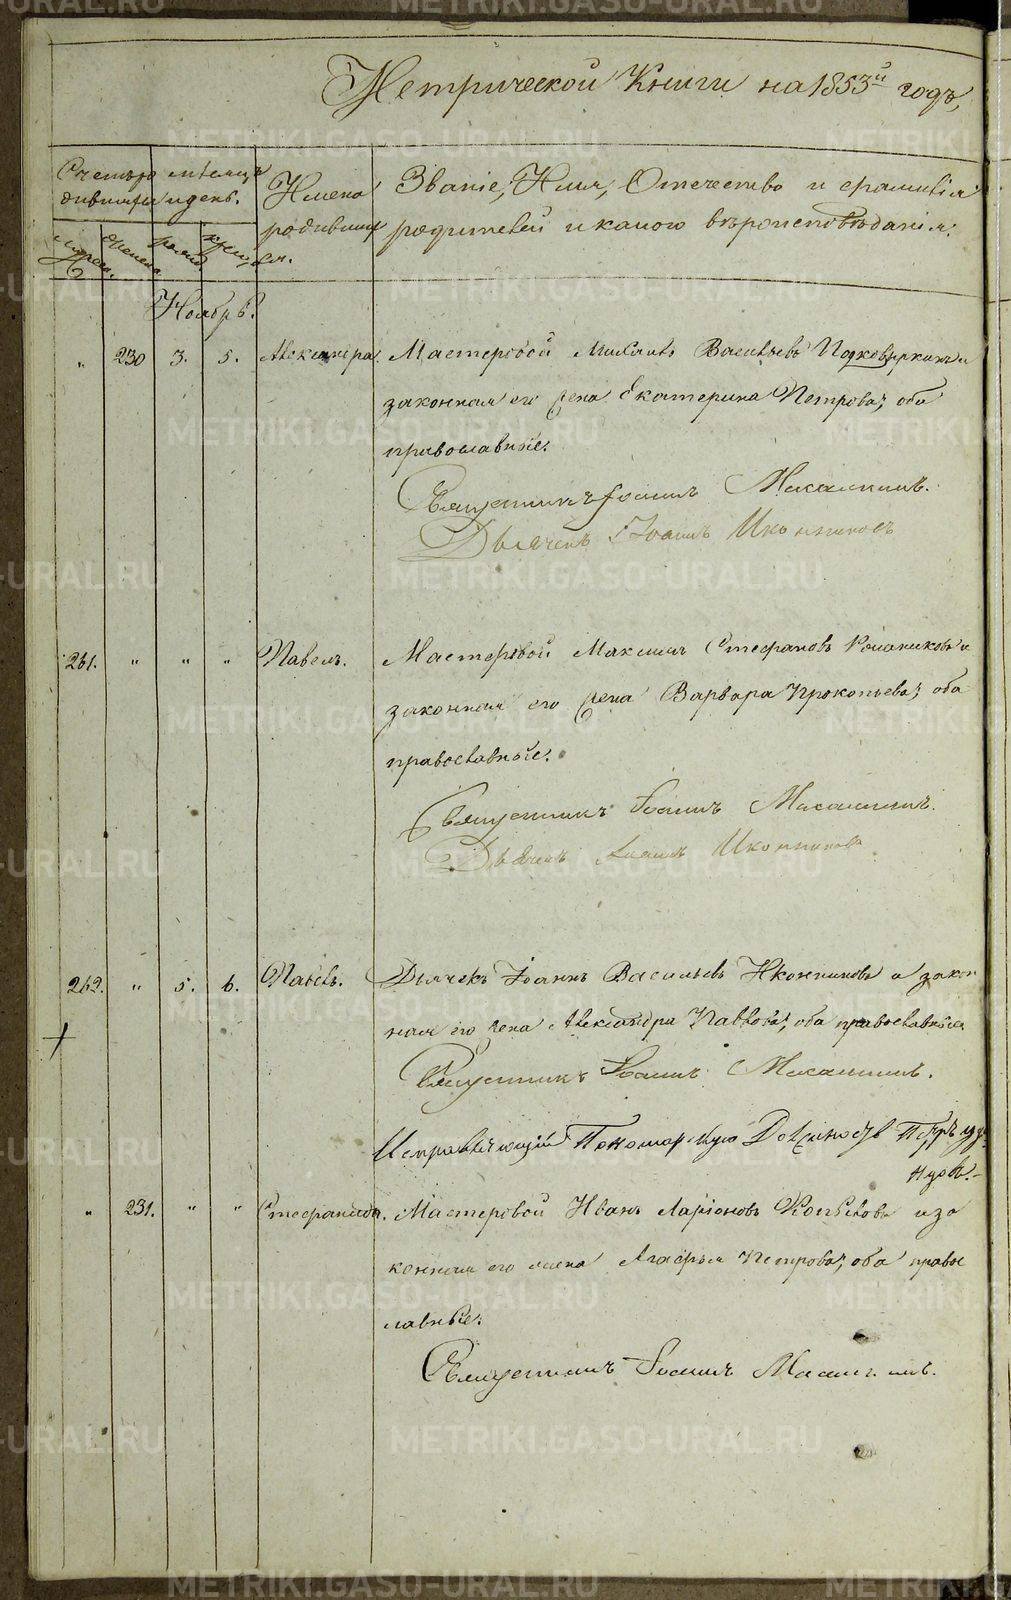 Метрической Книги на 1853й годъ,
Счетъ родившихся
Мѣсяцъ и день.
Имена родившихся.
Званіе, Имя, Отечество и фамилія
родителей и какого вѣроисповѣданія.
мужеск. женска. рожд. крещ.
Ноябрь.
" 230 3. 5. Александра Мастеровой Михаилъ Васильевъ Подковыркинъ и
законная его жена Екатерина Петрова, оба
православные.
Священникъ Іоаннъ
Дьячекъ Іоаннъ Иконниковъ
261. " " " Павелъ. Мастеровой Максимъ Стефановъ и
законная его жена Варвара Прокопьева, оба
православные.
Священникъ Іоаннъ
Дьячекъ Іоаннъ Иконниковъ
262. " 5. 6. Павелъ. Дьячекъ Іоаннъ Васильевъ Иконниковъ и закон
ная его жена Александра Павлова, оба православные
Священникъ Іоаннъ
Исправляющій Пономарскую Должность Петръ
" 231. " " Стефанида. Мастеровой Иванъ Ларіоновъ Копыловъ и за
конная его жена Агафья Петрова, оба право
славные.
Священникъ Іоаннъ
METRIKI.GASO-URAL.RU